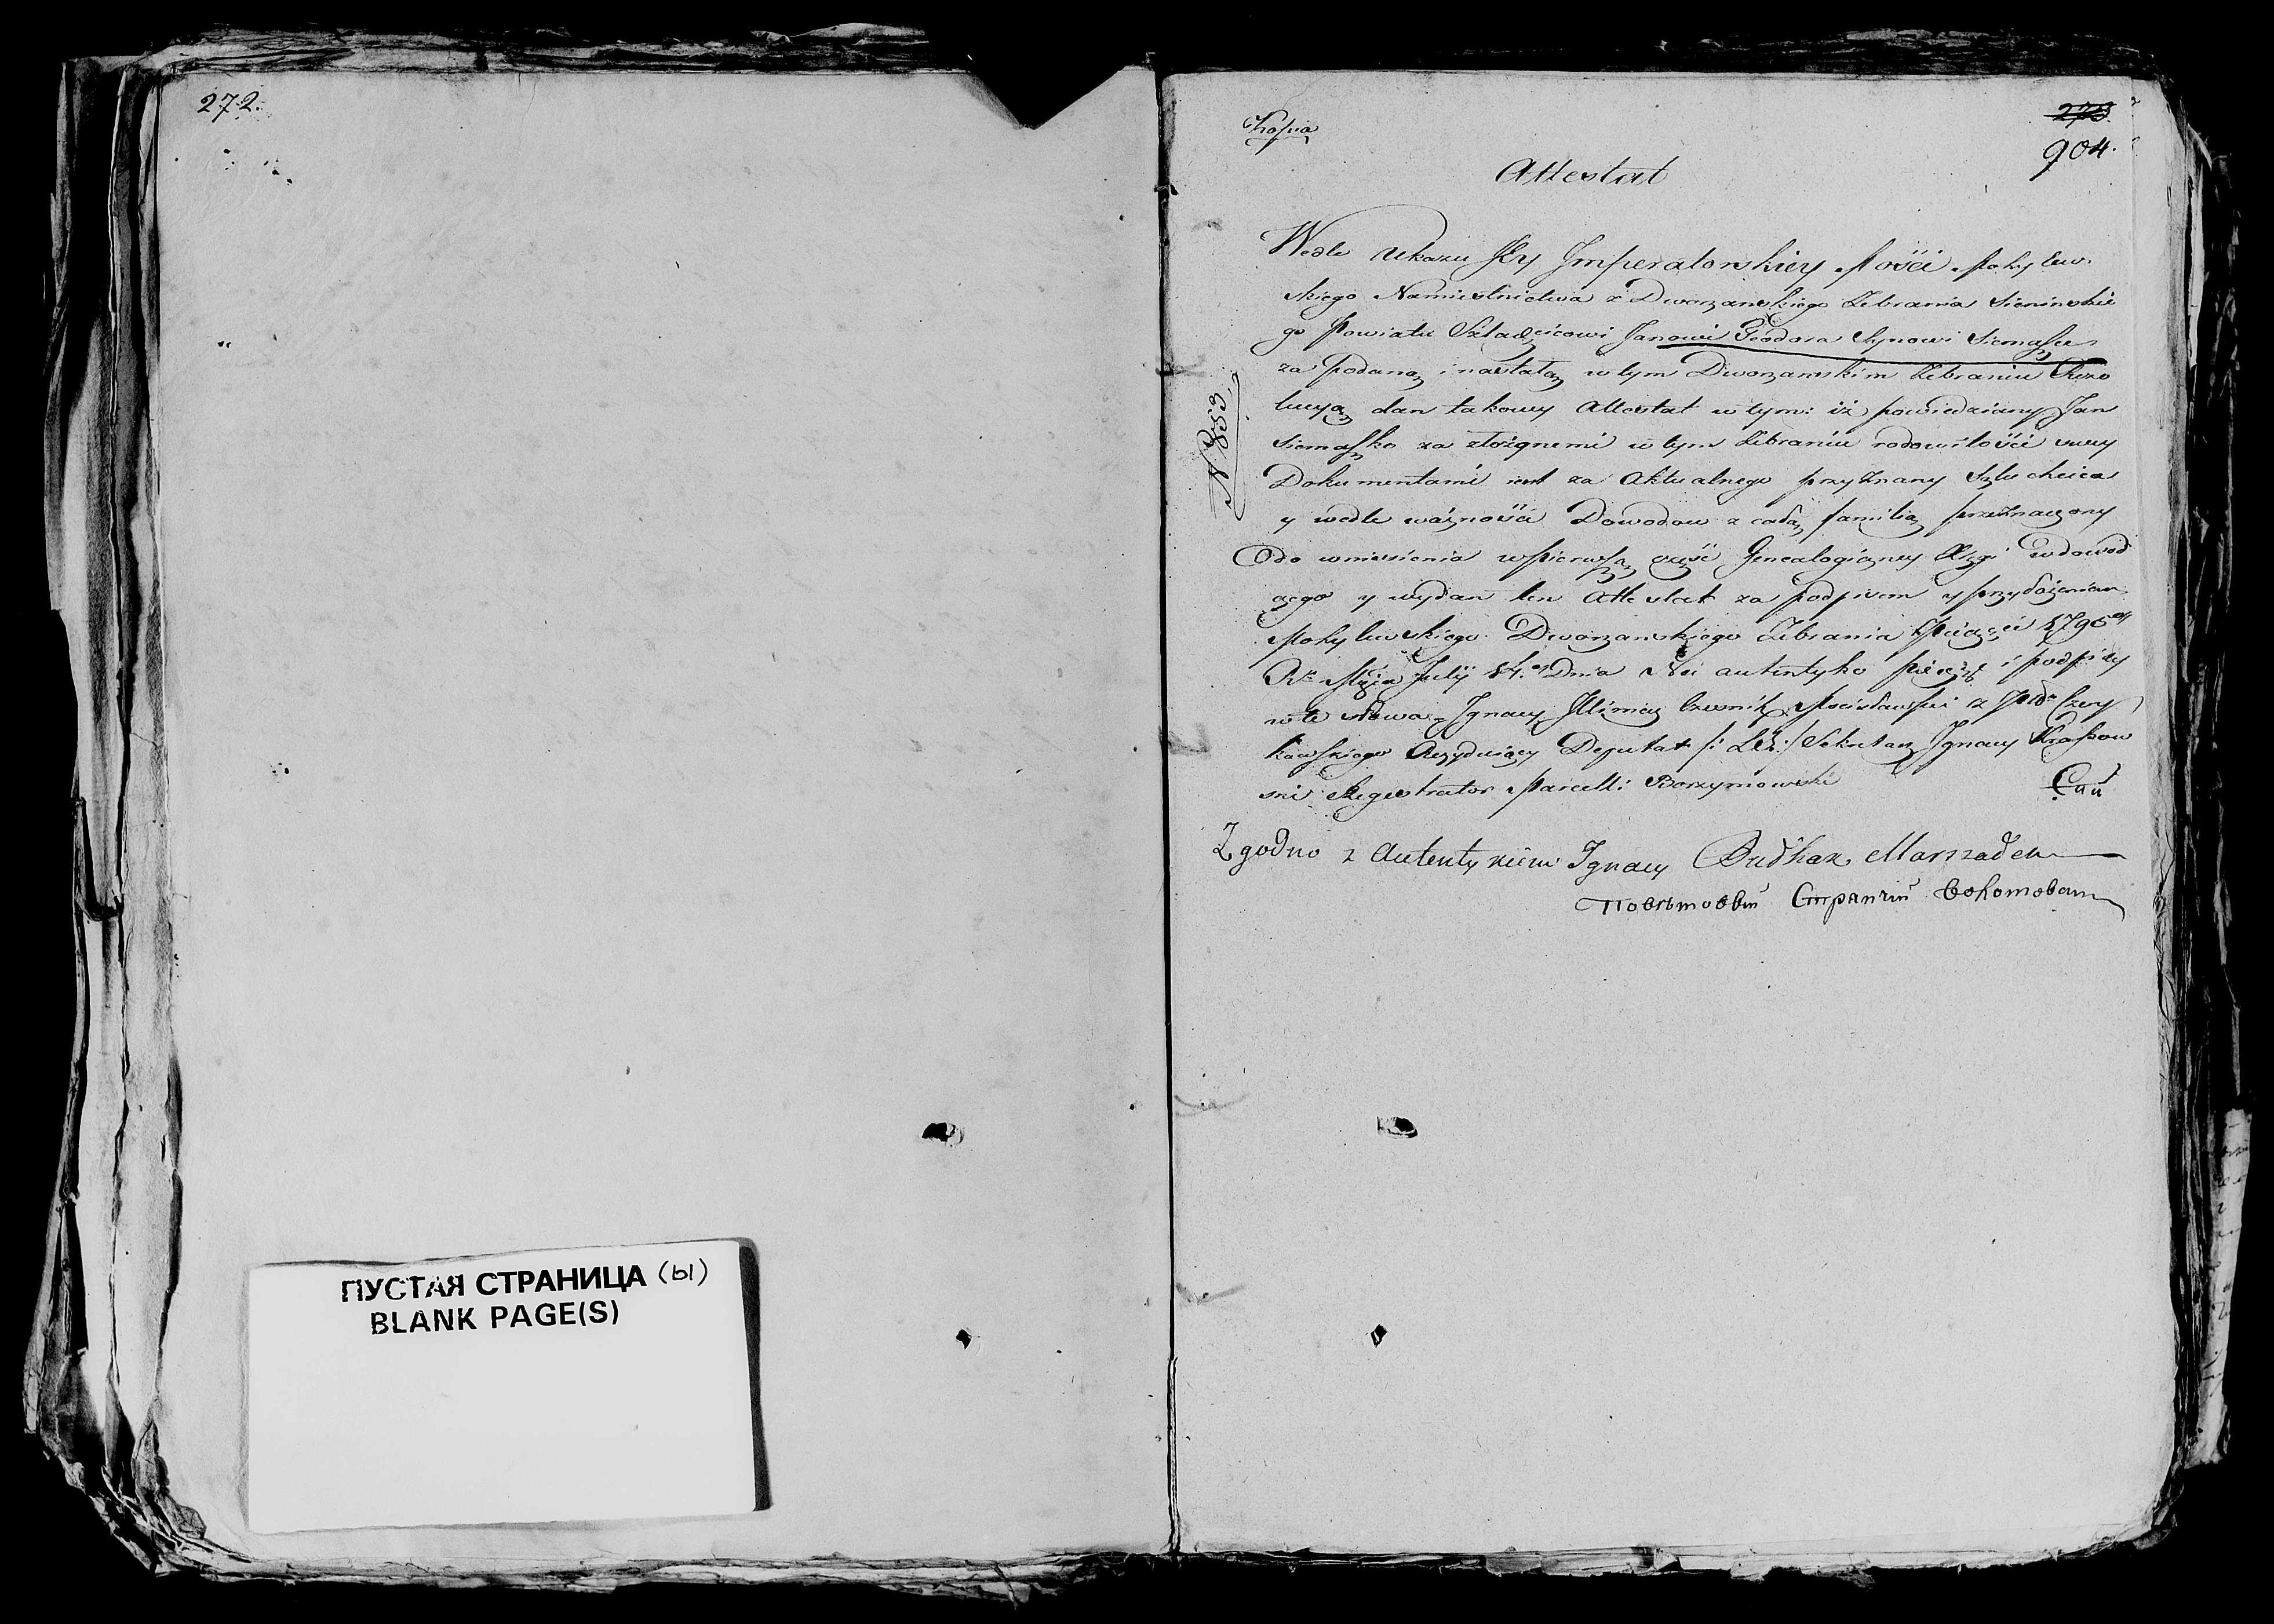 272.
ПУСТАЯ СТРАНИЦА (ы)
BLANK PAGE(S)
Kopia
273.
904.
Attestat
Wedle Ukazu JEy Imperatorskiey Mości Mohylew
skiego Namiestnictwa z Dworzanskiego Zebrania Sieninskie
go Powiatu Szlachcicowi Janowi Teodora Synowi Siemaszce
za Podaną i nastałą w tym Dworzanskim Zebraniu Rezo
lucyą dan takowy Attestat w tym: iż powiedziany Jan
Siemaszko za złożonemi w tym Zebraniu rodowitości swey
Dokumentami iest za Aktualnego przyznany Szlachcica
y wedle ważności Dowodow z całą familią przeznaczony
do wniesienia w pierwszą część Genealogiczney Xięgi
y wydan ten Attestat za podpisem y przyłożeniem
Mohylewskiego Dworzanskiego Zebrania Pieczęci 1795
Rku Mca July 14. Dnia U autentyku pieczęć i podpisy
w te słowa Ignacy Mscisławski z
Rezyduiący Deputat /: LS :/ Sekretarz Ignacy
ski Regestrator Marcelli Borzymowski
N 853
Zgodno z Autentykiem Ignacy Marszałek
Повѣтовый Стряпчій